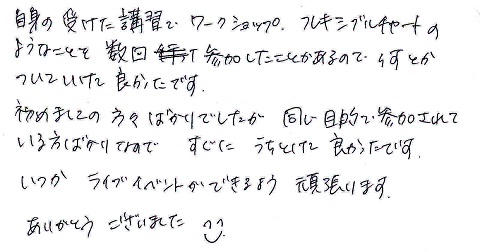 自身の受けた講習で ワークショップ. フレキシブルチャートの
ようなことを 数回 参加したことがあるので 何とか
ついていけて 良かったです.
初めましての 方々ばかりでしたが 同じ目的で参加されて
いる方ばかりなので すぐに うちとけて 良かったです.
いつか ライブイベントができるよう 頑張ります.
ありがとう ございました